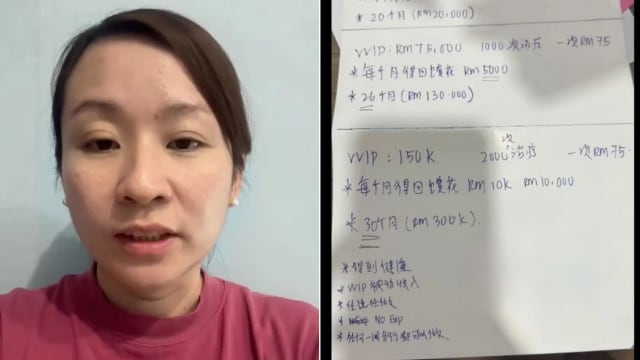 * 20个月 (RM20,000)
VVIP: RM75,000 1000次治疗 一次RM75
* 每个月得回馈花 RM 5000
* 26个月 (RM 130.000)
VVIP : 150K 2000次治疗 一次RM75
* 每个月得回馈花 RM 10K RM 10,000
* 30个月 (RM 300K).
* 得到健康
* VVIP 被动收入
* NO Exp
* 任何一间分行都可以做